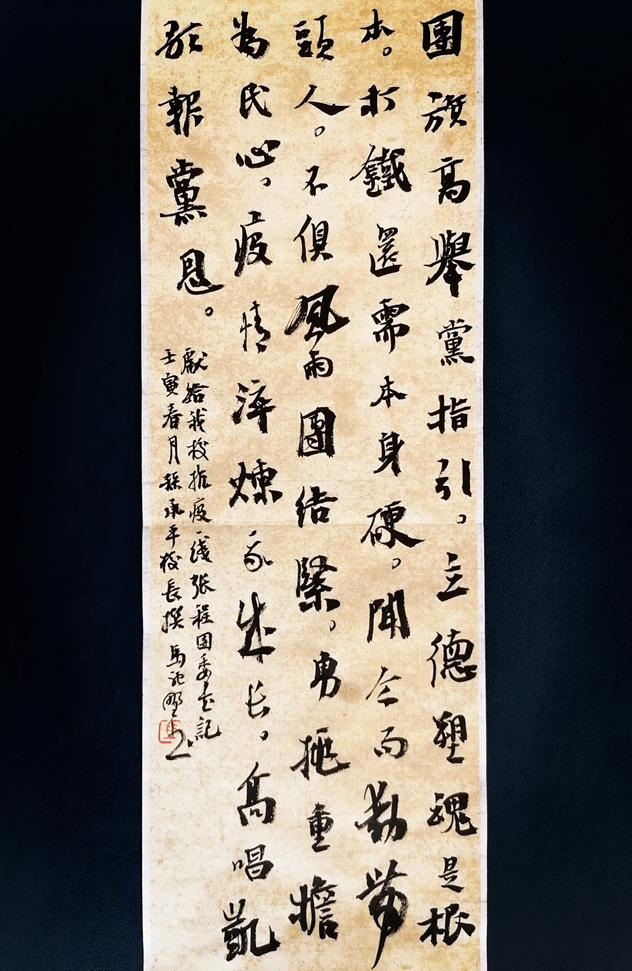 團旗高舉黨指引。立德塑魂是根
本。打鐵還需本身硬。聞令而動帶
頭人。不俱風雨團结緊。勇挑重擔
為民心。疫情淬煉我成长。高唱凱
歌報黨恩。
獻給我校抗疫一线张程团委书記
壬寅春月孫承平校長撰 馬